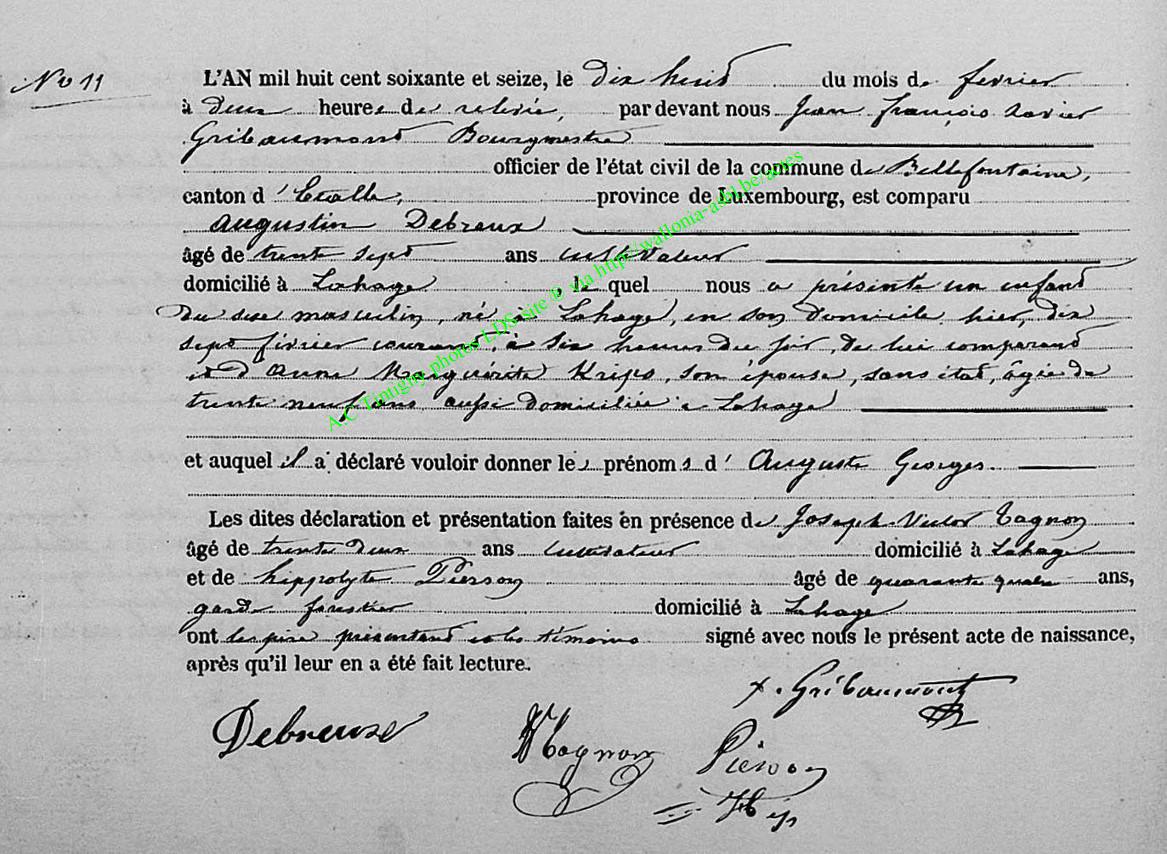 No 11
L'AN mil huit cent soixante et seize, le dix huit du mois de fevrier
à deux heures de relevée, par devant nous Jean François Xavier
Gribaumont Bourgmestre
officier de l'état civil de la commune de Bellefontaine,
canton d'Etalle, province de Luxembourg, est comparu
Augustin Debreux
âgé de trente sept ans cultivateur
domicilié à Lahage, le quel nous a présenté un enfant
du sexe masculin, né à Lahage, en son domicile hier, dix
sept février courant, à six heures du soir, de lui comparant
et d'Anne Marguerite Krips, son épouse, sans état, âgée de
trente neuf ans aussi domiciliée à Lahage
et auquel il a déclaré vouloir donner les prénoms d'Auguste Georges.
Les dites déclaration et présentation faites en présence de Joseph Victor Tagnon
âgé de trente deux ans cultivateur domicilié à Lahage
et de hippolyte Pierson âgé de quarante quatre ans,
garde forestier domicilié à Lahage
ont les père présentant et les témoins signé avec nous le présent acte de naissance,
après qu'il leur en a été fait lecture.
x. Gribaumont
Debreux
V Tagnon
Pierson
Hip
A.C Tintigny photos LDS site © via http//wallonia-asbl be/actes